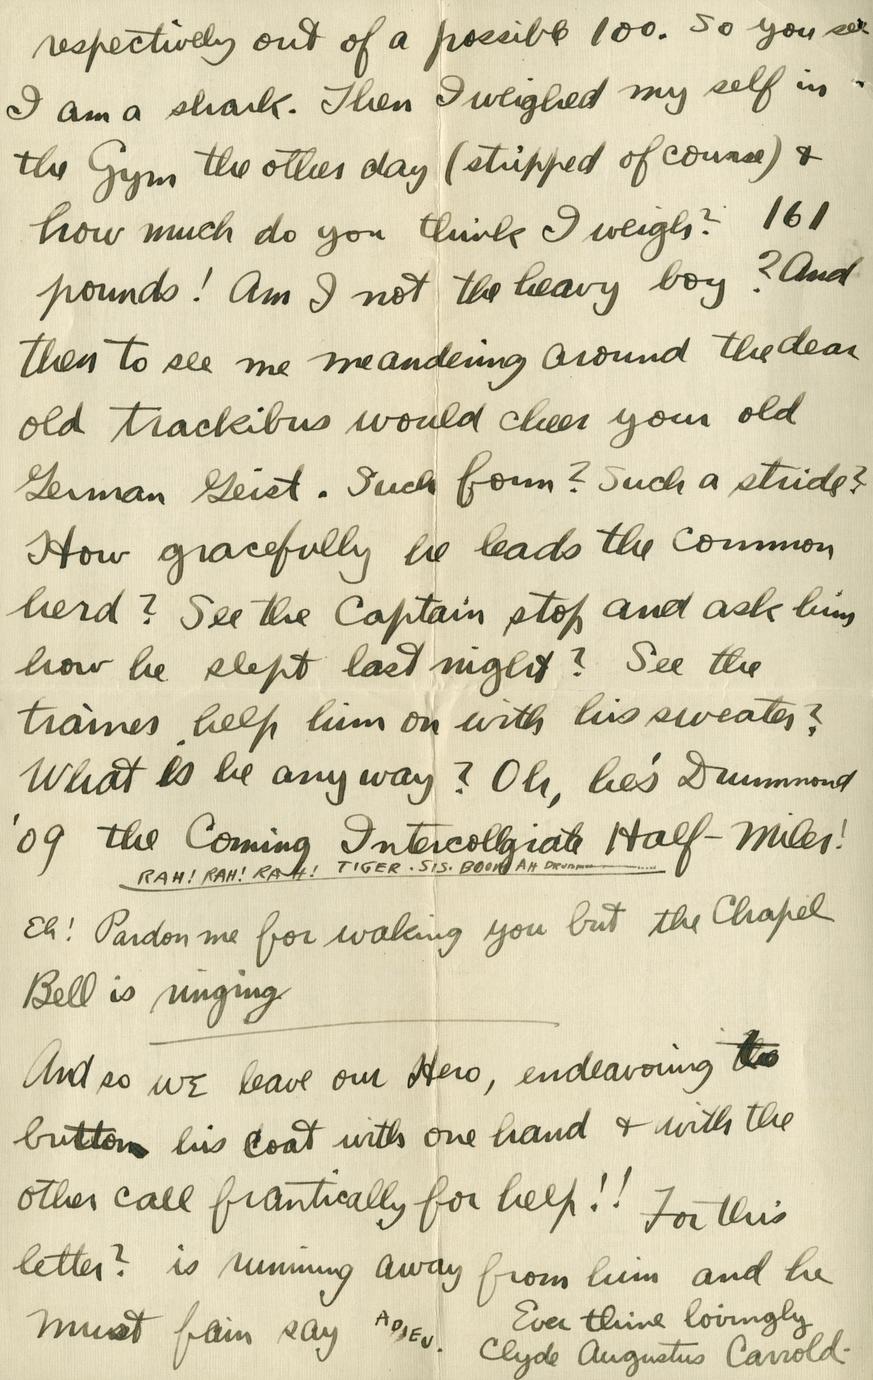 respectively out of a possible 100. So you see
I am a shark. Then I weighed my self in
the Gym the other day (stripped of course) &
how much do you think I weigh? 161
pounds! Am I not the heavy boy? And
then to see me meandering around the dear
old trackibus would cheer your old
German Geist. Such form? Such a stride?
How gracefully he leads the common
herd? See the Captain stop and ask him
how he slept last night? See the
trainer help him on with his sweater?
What is he anyway? Oh, he's Drummond
'09 the Coming Intercollegiate Half-Miler!
RAH! RAH! RAH! TIGER. SIS. BOOM AH
Eh! Pardon me for waking you but the Chapel
Bell is ringing
And so WE leave our Hero, endeavoring to
button his coat with one hand & with the
other call frantically for help!! For this
letter? is running away from him and he
must fain say ADIEU.
Ever thine lovingly
Clyde Augustus Carrold.